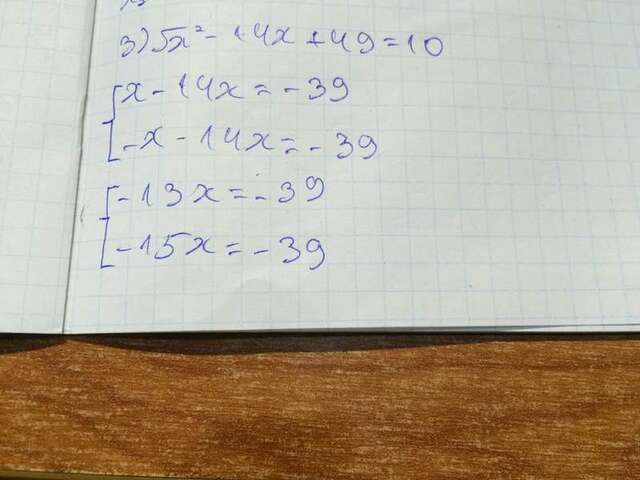 3) √x² - 14x + 49 = 10
x - 14x = - 39
-x - 14x = - 39
-13x = - 39
-15x = - 39